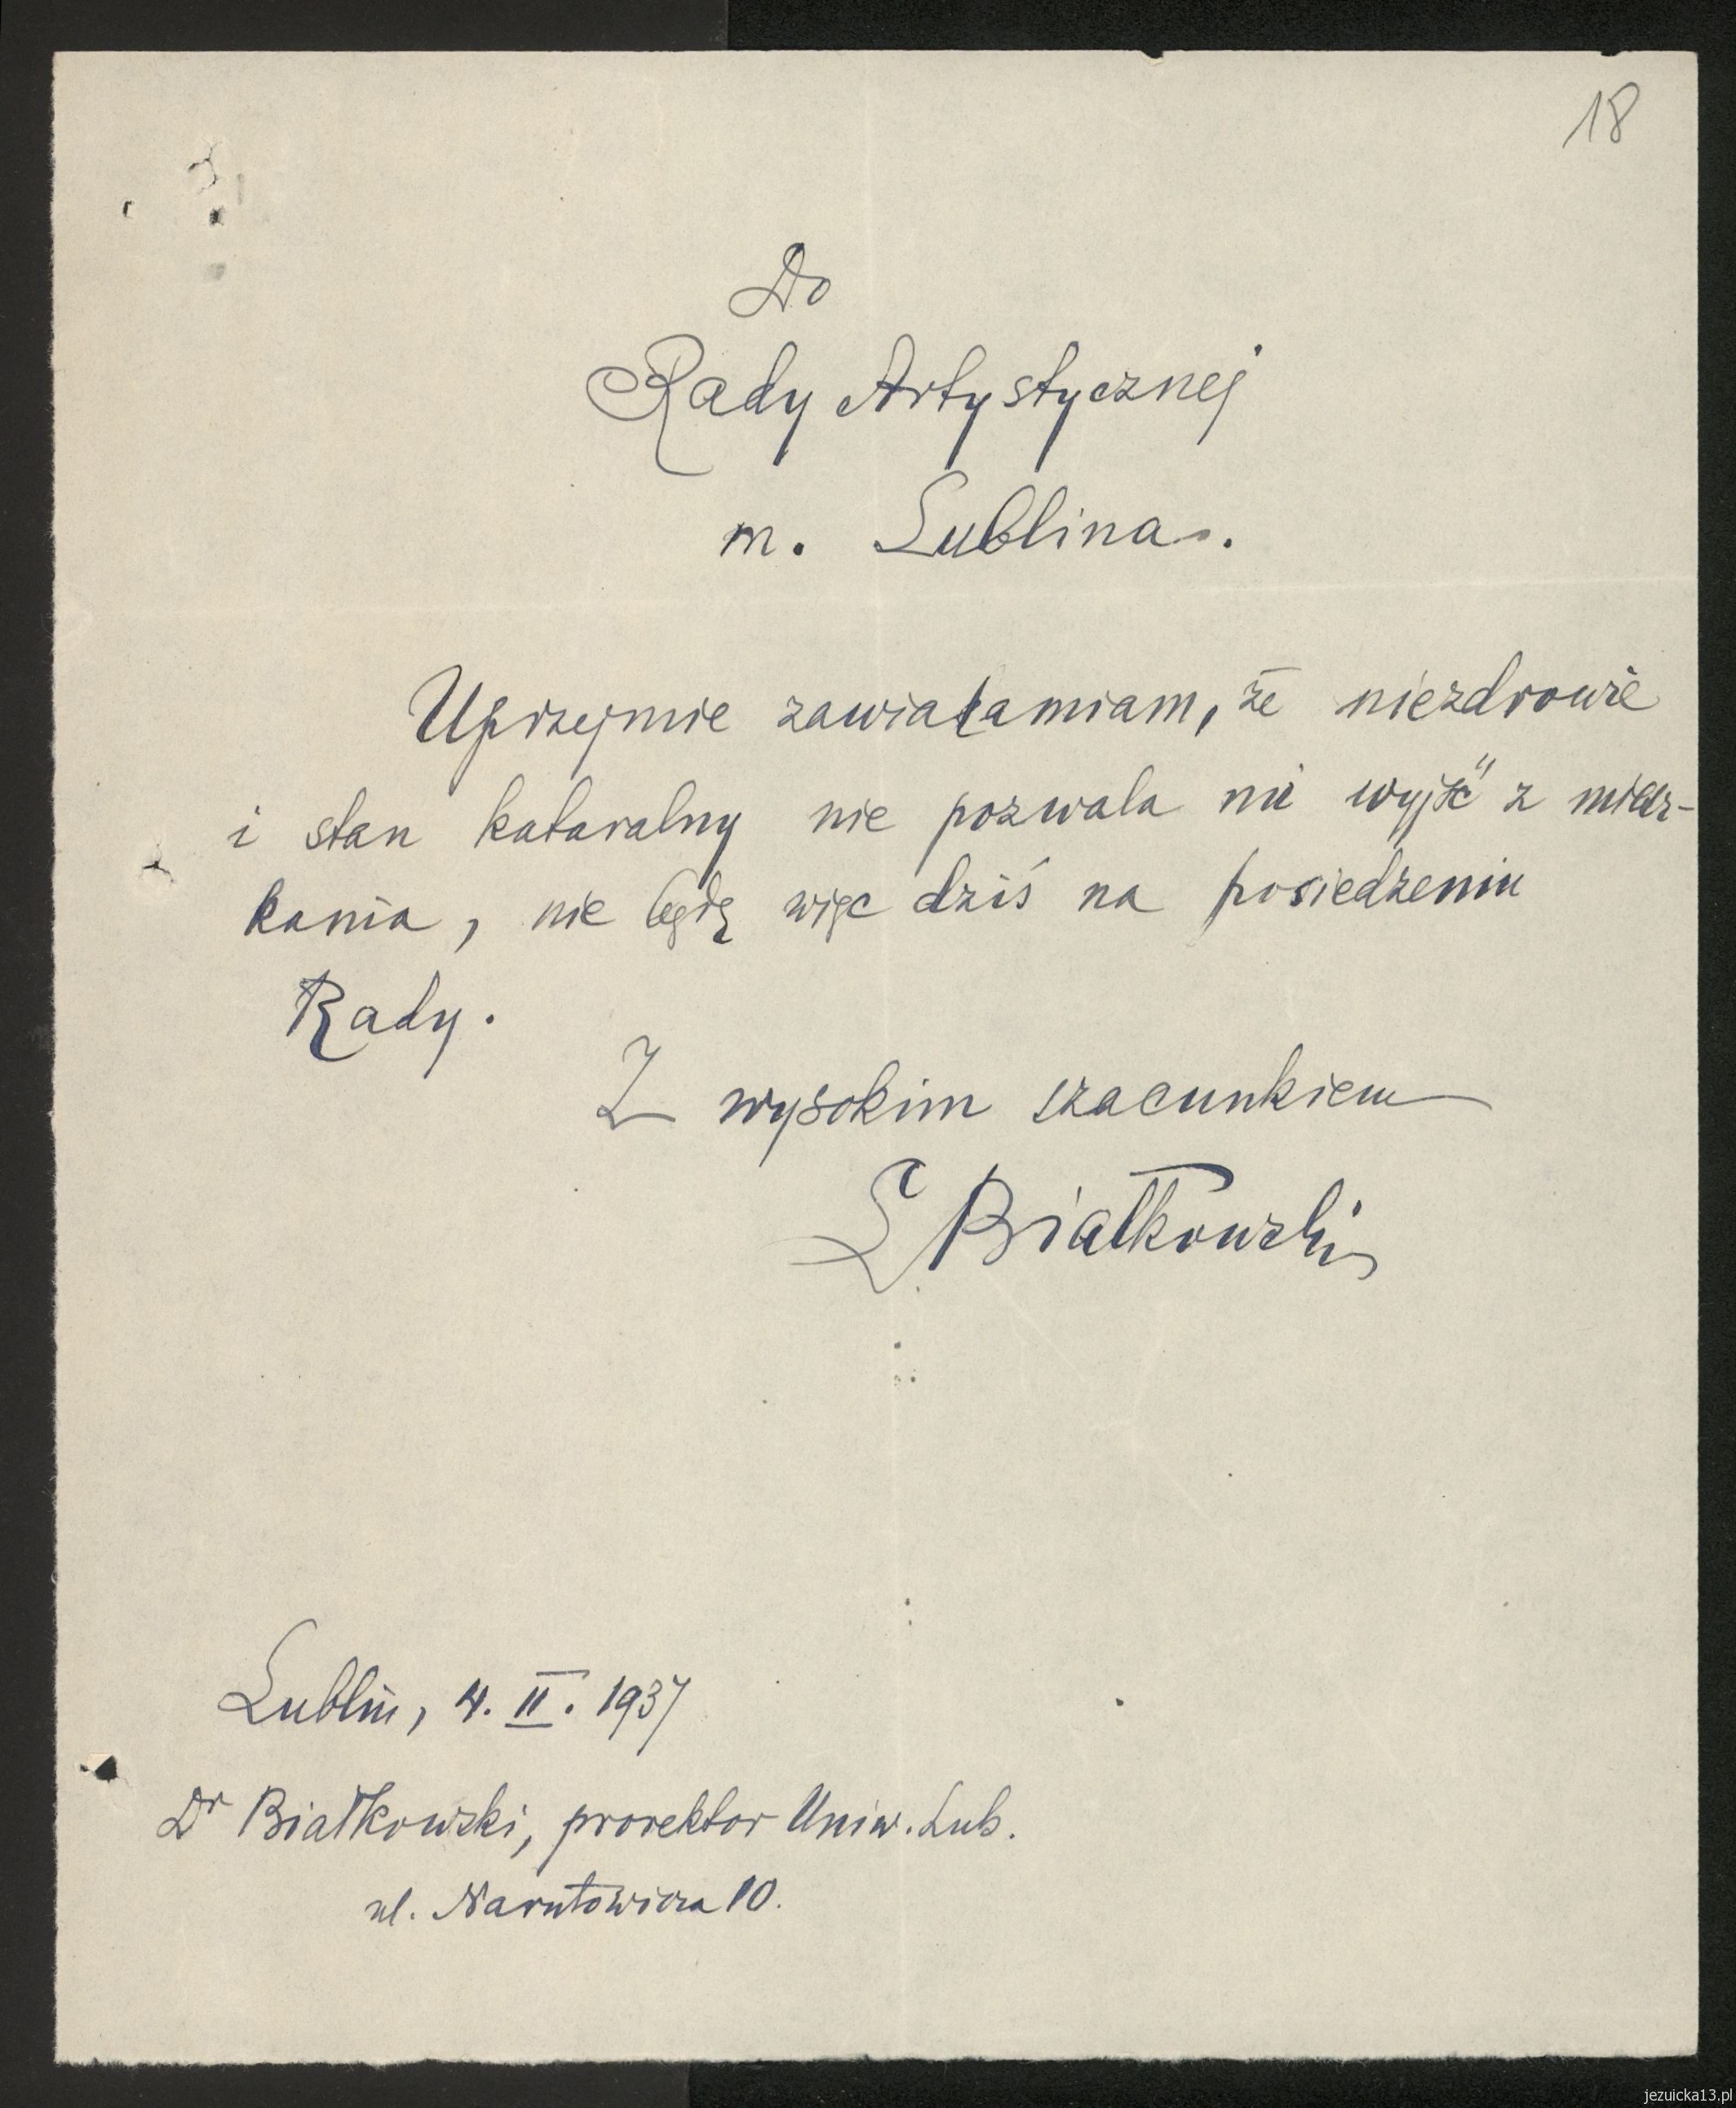 18
Do
Rady Artystycznej
m. Lublina.
Uprzejmie zawiadamiam, że niezdrowie
i stan kataralny nie pozwala mi wyjść z miesz-
kania, nie będę więc dziś na posiedzeniu
Rady.
Z wysokim szacunkiem
L Białkowski
Lublin, 4. II. 1937
Dr Białkowski, prorektor Uniw. Lub.
ul. Narutowicza 10.
jezuicka13.pl